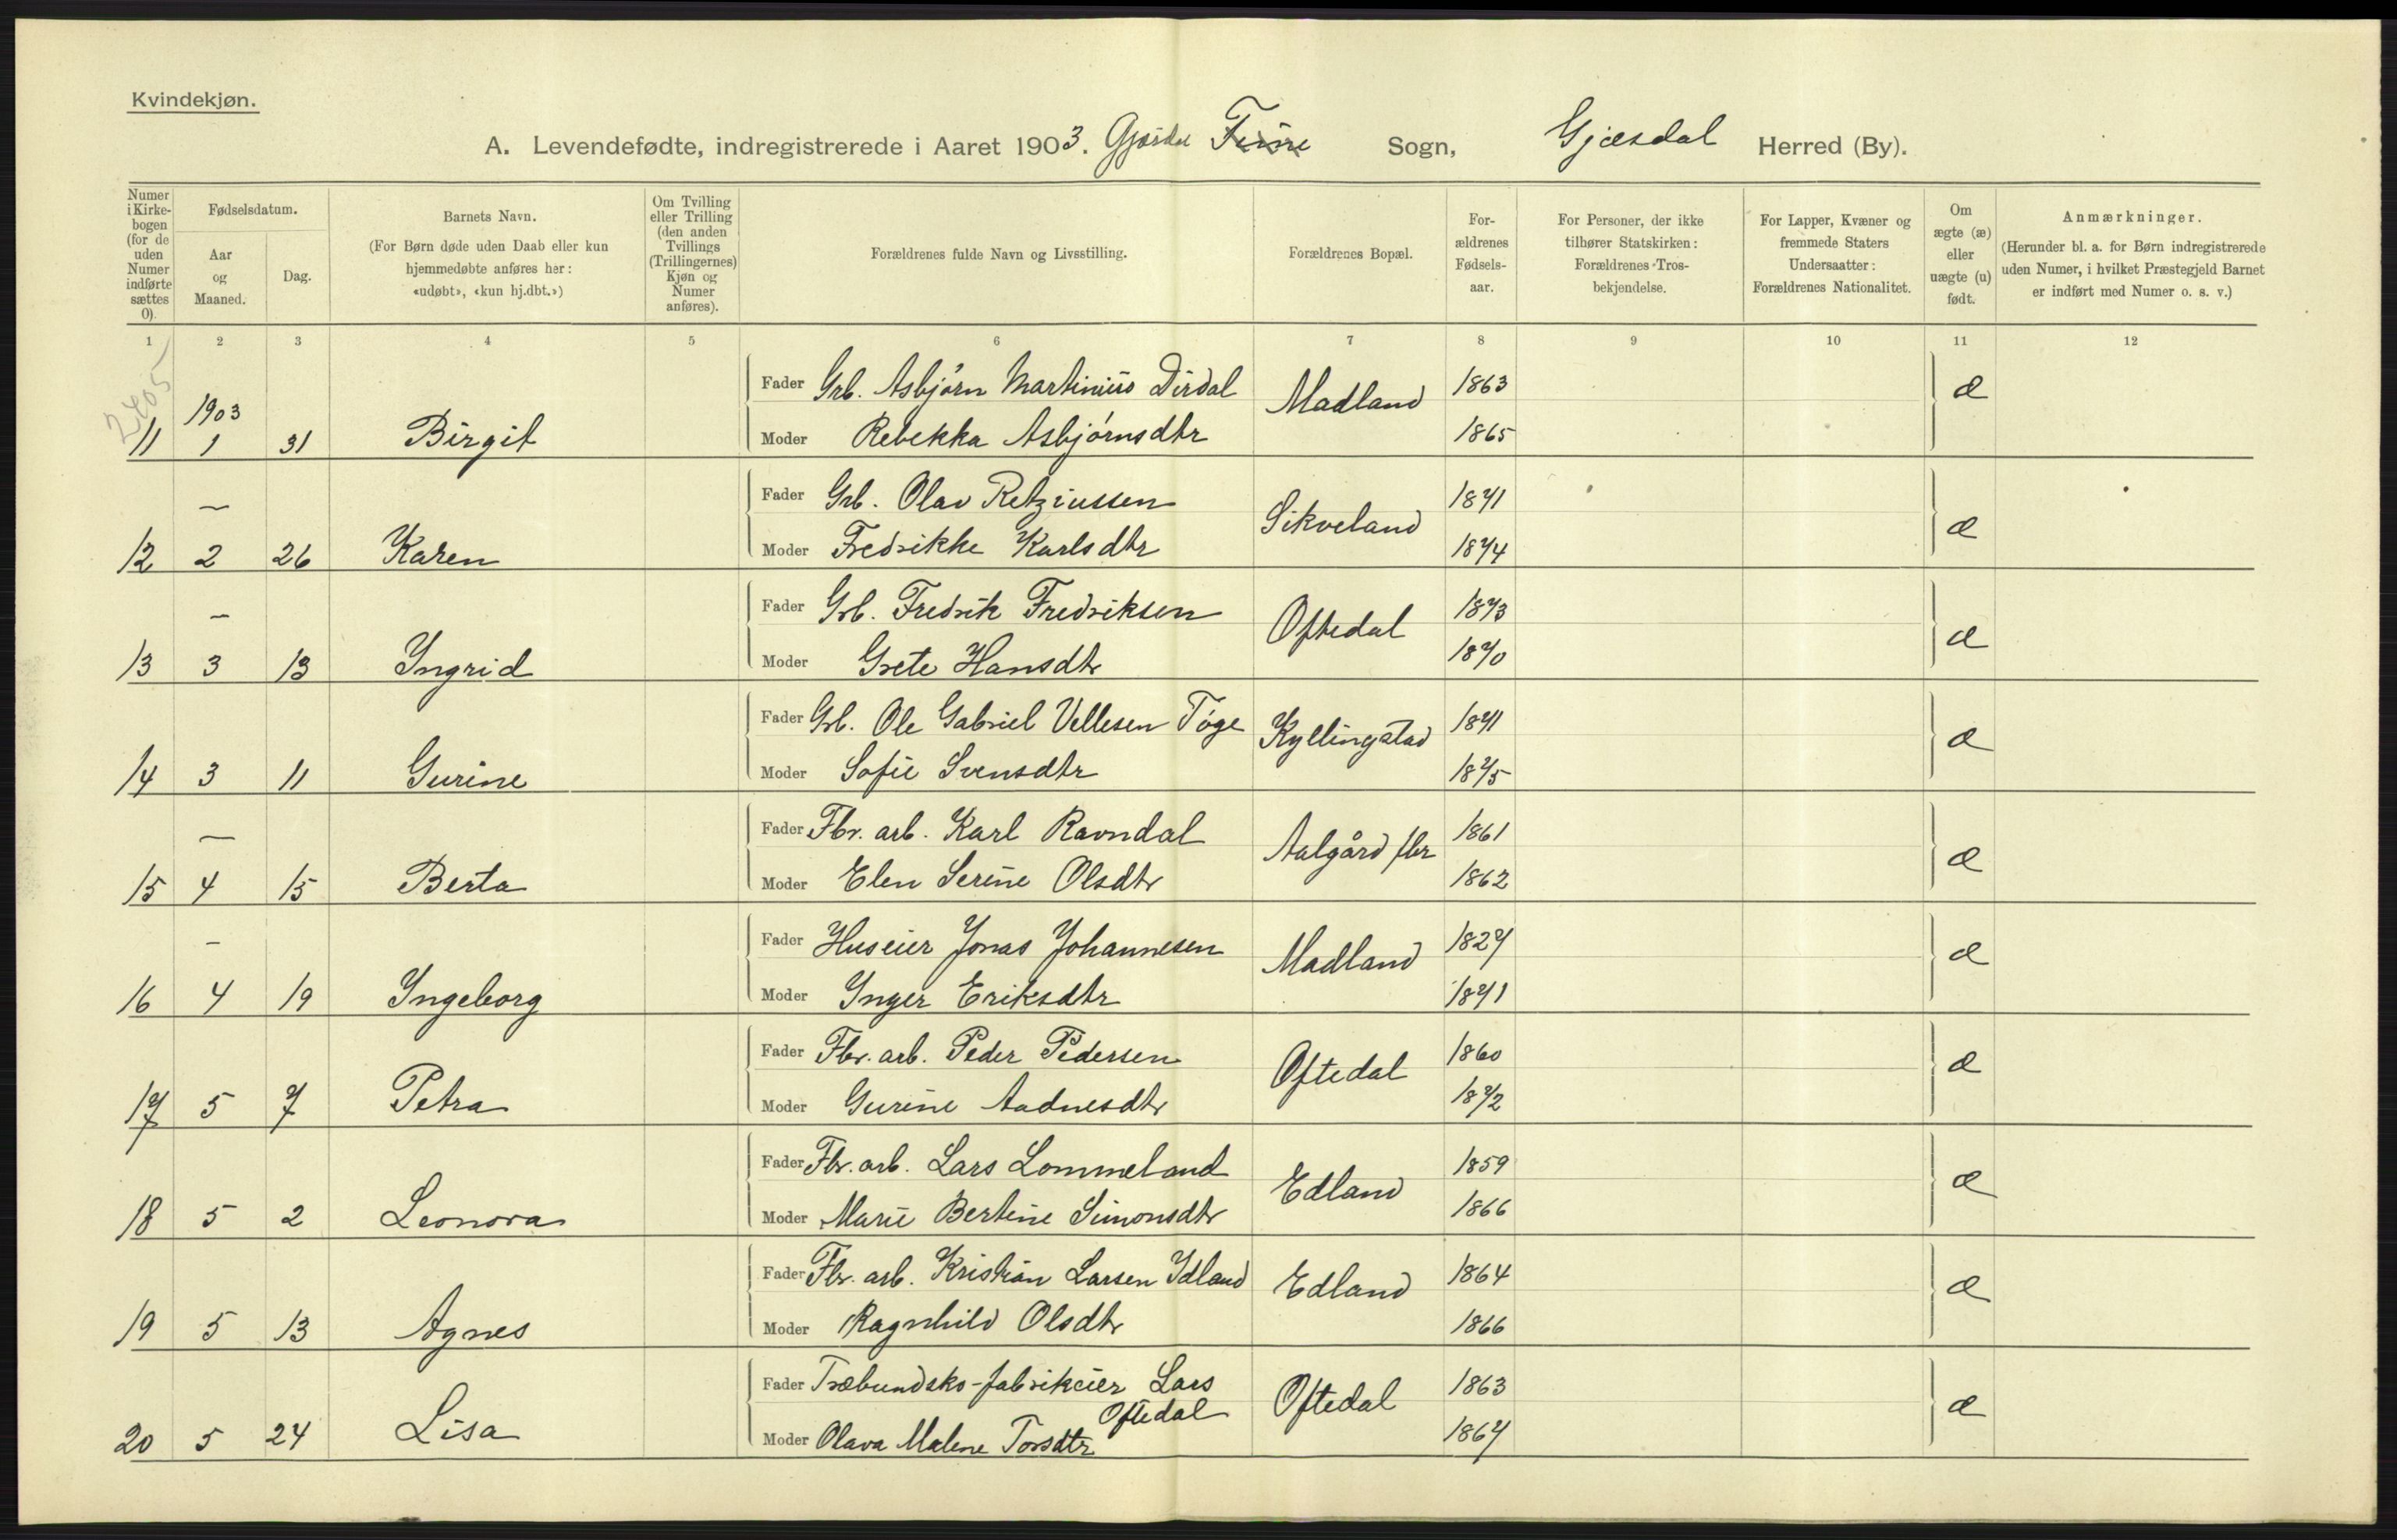 Kvindekjøn.
A. Levendefødte, indregistrerede i Aaret 1903. Gjæsdal Sogn, Gjæsdal Herred (By).
Numer i Kirkebogen (for de uden Numer indførte sættes 0). Fødselsdatum. Aar og Maaned. Dag. Barnets Navn. (For Børn døde uden Daab eller kun hjemmedøbte anføres her: «udøbt», «kun hj.dbt.») Om Tvilling eller Trilling (den anden Tvillings (Trillingernes) Kjøn og Numer anføres). Forældrenes fulde Navn og Livsstilling. Forældrenes Bopæl. Forældrenes Fødselsaar. For Personer, der ikke tilhører Statskirken: Forældrenes Trosbekjendelse. For Lapper, Kvæner og fremmede Staters Undersaatter: Forældrenes Nationalitet. Om ægte (æ) eller uægte (u) født. Anmærkninger. (Herunder bl. a. for Børn indregistrerede uden Numer, i hvilket Præstegjeld Barnet er indført med Numer o. s. v.)
1 2 3 4 5 6 7 8 9 10 11 12
2405
1903 Fader Grb. Asbjørn Martinius Dirdal Madland 1863 æ
11 1 31 Birgit Moder Rebekka Asbjørnsdtr 1865
— Fader Grb. Olav Retziussen Sikveland 1871 æ
12 2 26 Karen Moder Fredrikke Karlsdtr 1874
— Fader Grb. Fredrik Fredriksen Oftedal 1873 æ
13 3 13 Ingrid Moder Grete Hansdtr 1870
Fader Grb. Ole Gabriel Vellesen Tøge Kyllingstad 1871 æ
14 3 11 Gurine Moder Sofie Svensdtr 1875
— Fader Fbr. arb. Karl Ravndal Aalgård fbr 1861 æ
15 4 15 Berta Moder Elen Serine Olsdtr 1862
— Fader Huseier Jonas Johannesen Madland 1827 æ
16 4 19 Ingeborg Moder Inger Eriksdtr 1871
Fader Fbr. arb. Peder Pedersen Oftedal 1860 æ
17 5 7 Petra Moder Gurine Aadnesdtr 1872
Fader Fbr. arb. Lars Lommeland Edland 1859 æ
18 5 2 Leonora Moder Marie Bertine Simonsdtr 1866
Fader Fbr. arb. Kristian Larsen Idland Edland 1864 æ
19 5 13 Agnes Moder Ragnhild Olsdtr 1866
Fader Træbundsko-fabrikeier Lars Oftedal Oftedal 1863 æ
20 5 24 Lisa Moder Olava Malene Torsdtr 1867